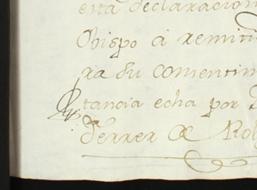 esta declaracion
Obispo á remiti
ra su consentim
tancia echa por
Ferrer